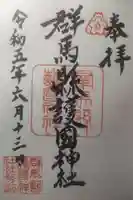 奉拝
群馬縣護國神社
令和五年六月十三日